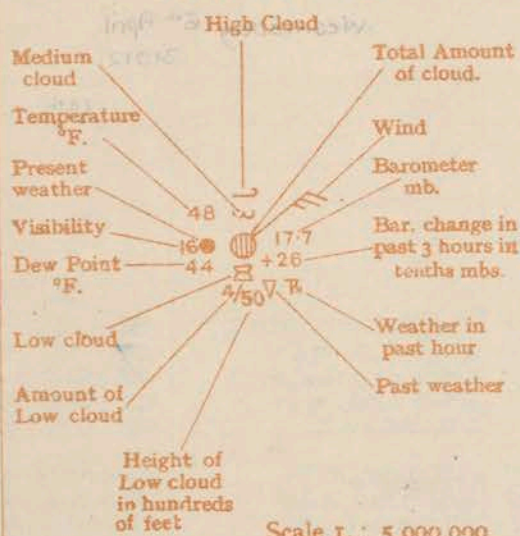 High Cloud
Medium
cloud
Total Amount
of cloud.
Temperature
°F.
Wind
Present
weather
Barometer
mb.
48
Visibility
16
17·7
Bar. change in
past 3 hours in
tenths mbs.
Dew Point
°F.
44
+26
4/50
Low cloud
Weather in
past hour
Amount of
Low cloud
Past weather
Height of
Low cloud
in hundreds
of feet
Scale 1 : 5,000,000